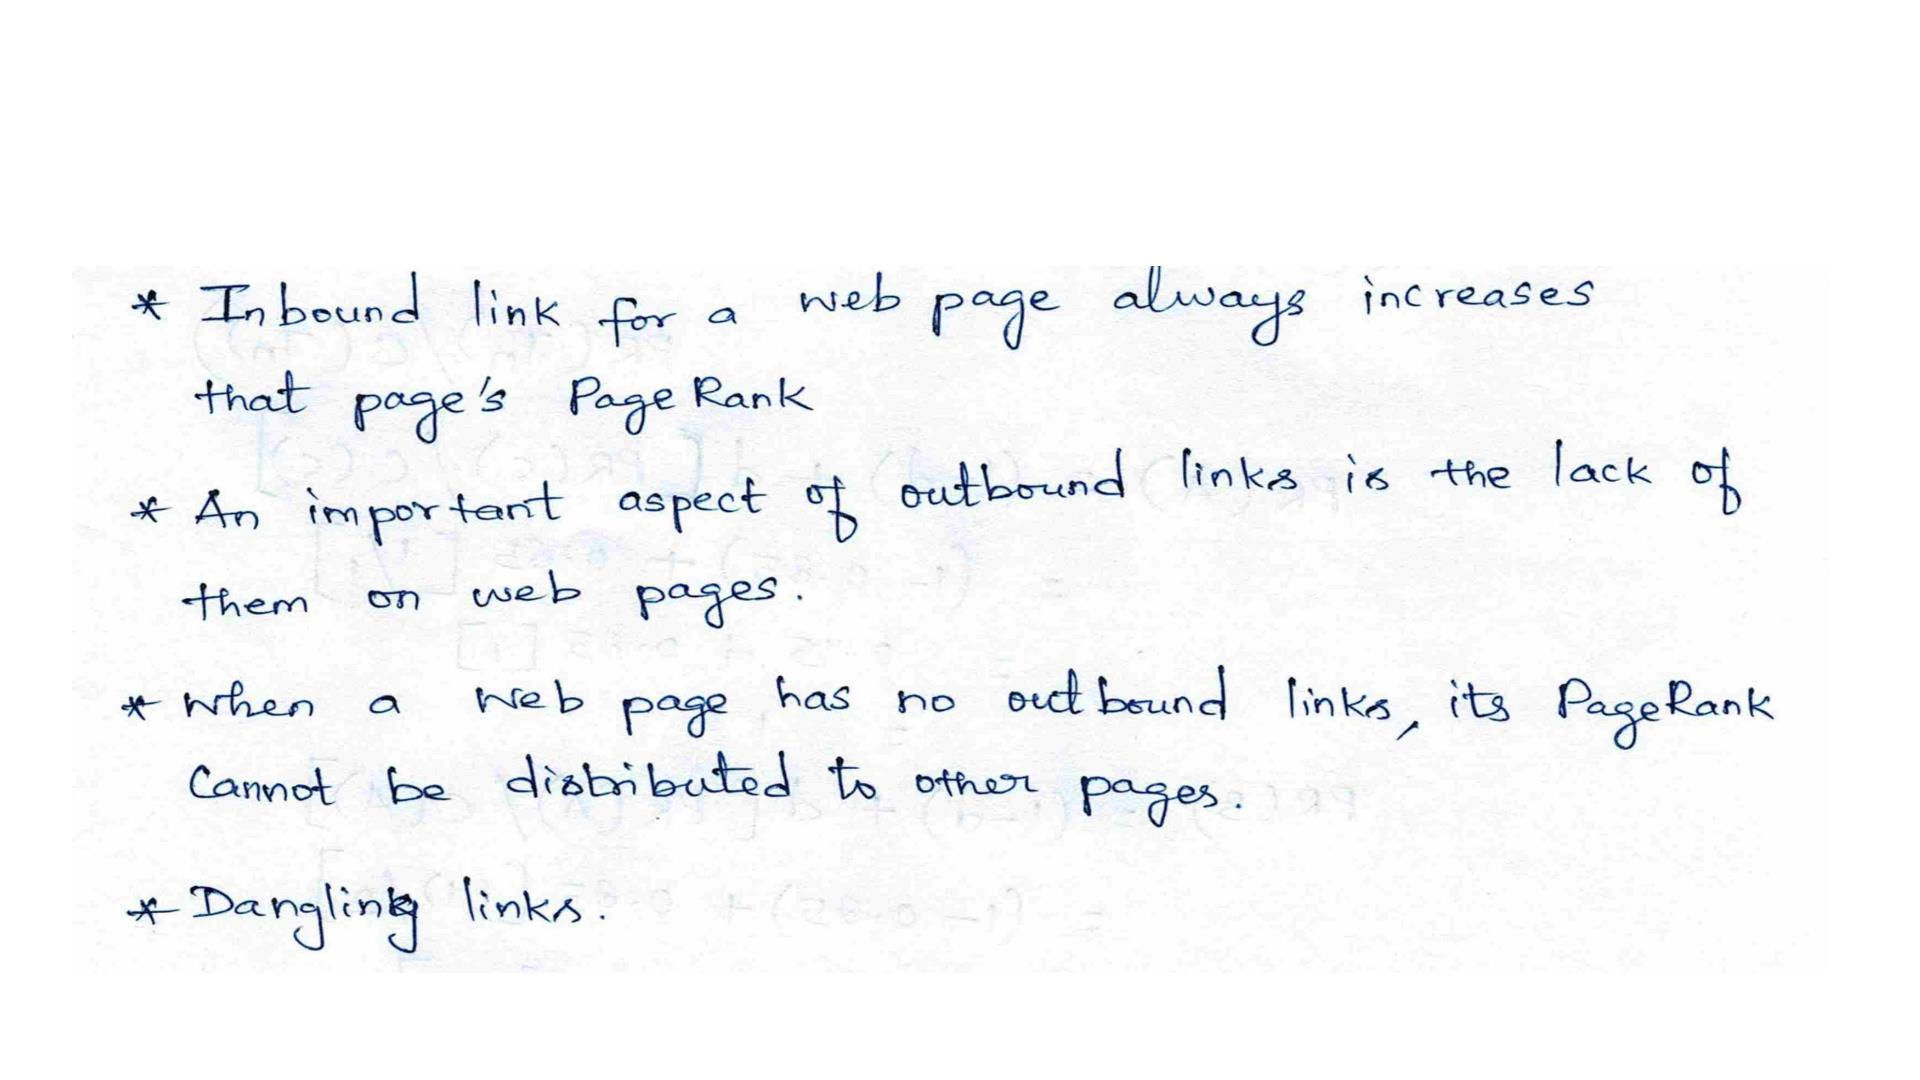 * Inbound link for a web page always increases
that page's PageRank
* An important aspect of outbound links is the lack of
them on web pages.
* When a web page has no outbound links, its PageRank
Cannot be distributed to other pages.
* Dangling links.